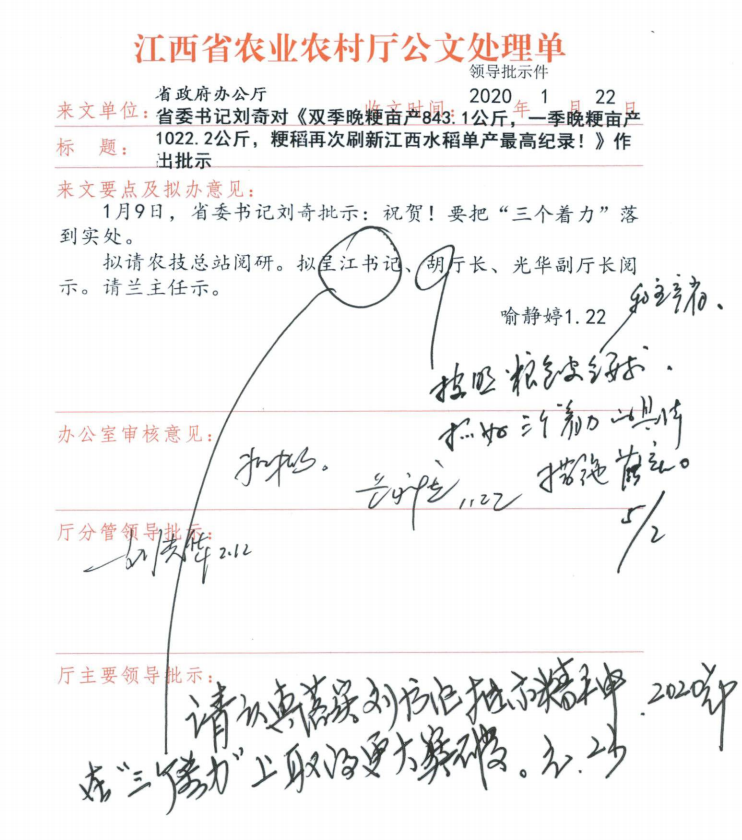 江西省农业农村厅公文处理单
领导批示件
来文单位：省政府办公厅 收文时间：2020年1月22日
标 题：省委书记刘奇对《双季晚粳亩产843.1公斤，一季晚粳亩产
1022.2公斤，粳稻再次刷新江西水稻单产最高纪录！》作
出批示
来文要点及拟办意见：
1月9日，省委书记刘奇批示：祝贺！要把“三个着力”落
到实处。
拟请农技总站阅研。拟呈江书记、胡厅长、光华副厅长阅
示。请兰主任示。
喻静婷1.22
按照
抓好三个着力 以具体
措施落实。
5/2
办公室审核意见：
拟同。
1.22
厅分管领导批示：
刘光华 2.12
厅主要领导批示：
请认真落实刘书记批示精神，2020年
在“三个着力”上取得更大突破。